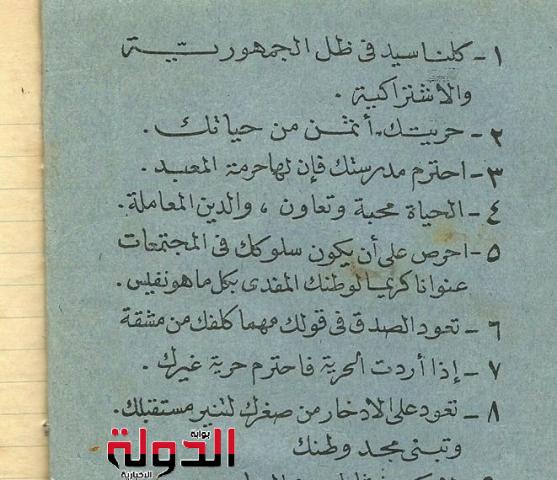 ١- كلنا سيد فى ظل الجمهورية
والاشتراكية .
٢- حريتك أثمن من حياتك .
٣- احترم مدرستك فإن لها حرمة المعبد .
٤- الحياة محبة وتعاون ، والدين المعاملة .
٥- احرص على أن يكون سلوكك فى المجتمعات
عنوانا كريما لوطنك المفدى بكل ما هو نفيس .
٦- تعود الصدق فى قولك مهما كلفك من مشقة
٧- إذا أردت الحرية فاحترم حرية غيرك .
٨- تعود على الادخار من صغرك لتنير مستقبلك .
وتبنى مجد وطنك
بوابة
الدولة
الاخبارية